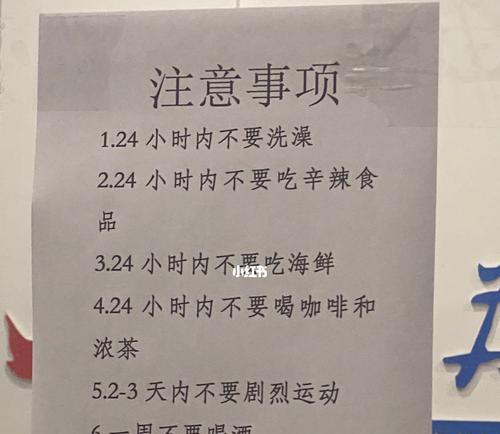 注意事项
1.24 小时内不要洗澡
2.24 小时内不要吃辛辣食
品
3.24 小时内不要吃海鲜
小红书
4.24 小时内不要喝咖啡和
浓茶
5.2-3 天内不要剧烈运动
6.一周不要喝酒